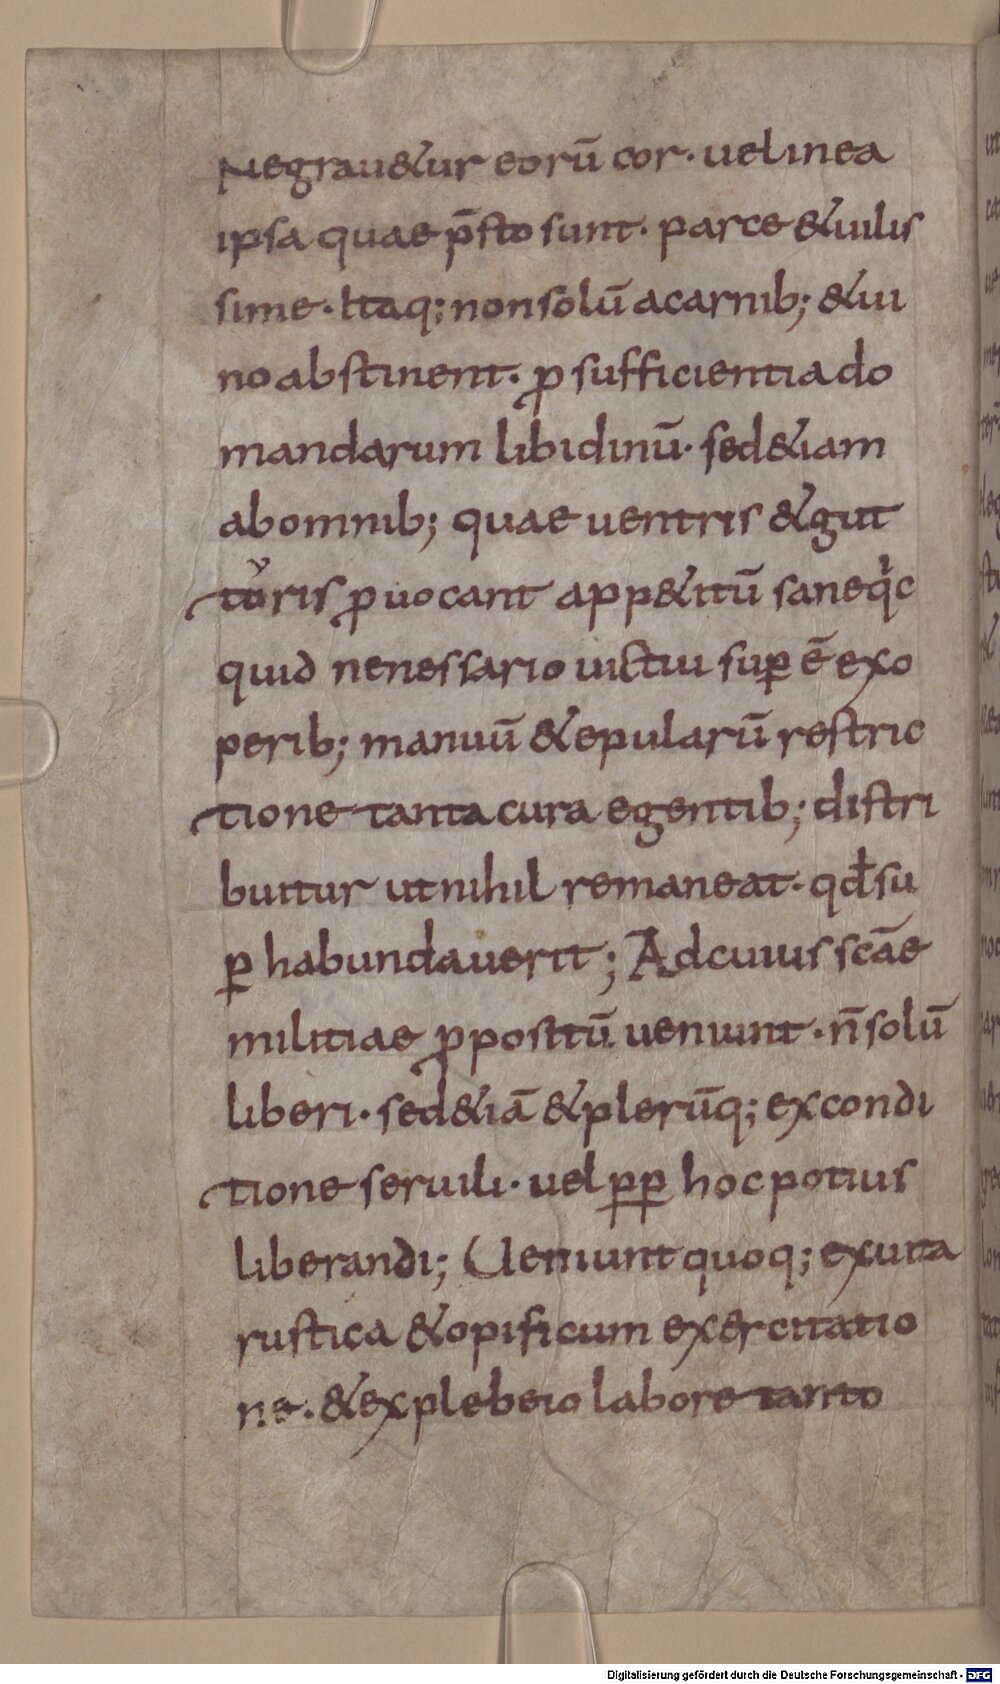 Negrau&ur eorū cor · uel inea
ipsa quae p̄sto sunt · parce &uilis
sime · Itaq; non solū a carnib; &ui
no abstinent · ꝓ sufficientia do
mandarum libidinū · sed&iam
ab omnib; quae uentris &gut
turis ꝓuocant app&itū sane qͥc
quid nenessario uictui suꝑ ē exo
perib; manuū &epularū restric
tione tanta cura egentib; distri
buitur ut nihil remaneat · qđ su
ꝑ habundauerit ; Ad cuius scāe
militiae ꝓpositū ueniunt · n̄ solū
liberi · sed&iā &plerūq; ex condi
tione seruili · uel ꝑꝑ hoc potius
liberandi; Ueniunt quoq; ex uita
rustica &opificum exercitatio
ne · &ex plebeio labore tanto
Digitalisierung gefördert durch die Deutsche Forschungsgemeinschaft - DFG